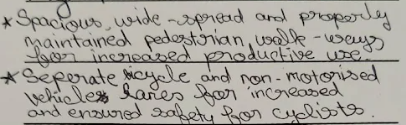 * Spacious, wide-spread and properly
maintained pedestrian walk-ways
for increased productive use.
* Seperate bicycle and non-motorised
vehicles lanes for increased
and ensured safety for cyclists.